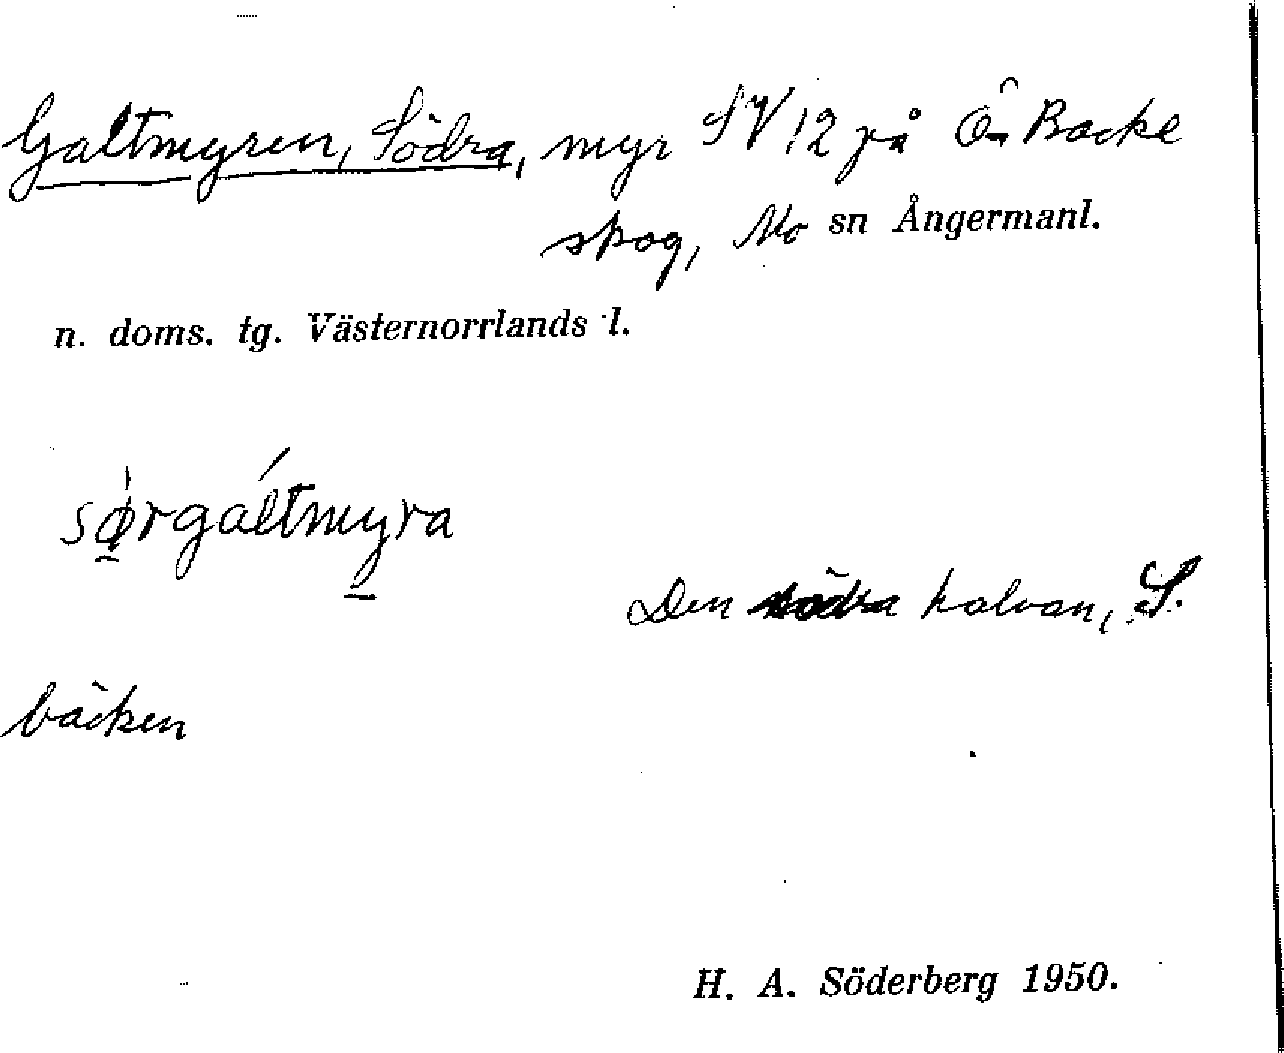 Galtmyren, Södra, myr SV 12 på Ö Backe
skog, Mo sn Ångermanl.
n. doms. tg. Västernorrlands l.
sørgáltmyra
Den södra halvan, S.
bäcken
H. A. Söderberg 1950.